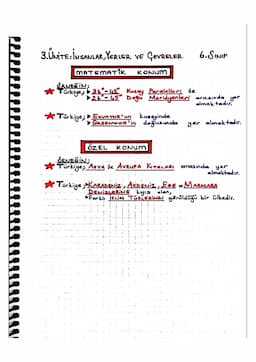 3.ÜNİTE: İNSANLAR, YERLER VE ÇEVRELER 6.SINIF
MATEMATİK KONUM
ÖRNEĞİN;
Türkiye; 36°-42° Kuzey Paralelleri ile
26°-45° Doğu Meridyenleri arasında yer
almaktadır.
Türkiye; EKVATOR'un kuzeyinde
GREENWICH'in doğusunda yer almaktadır.
ÖZEL KONUM
ÖRNEĞİN;
Türkiye; ASYA ile AVRUPA KITALARI arasında yer
almaktadır.
Türkiye; KARADENİZ, AKDENİZ, EGE ve MARMARA
DENİZLERİNE kıyısı olan,
Farklı İKLİM TÜRLERİNİN görüldüğü bir ülkedir.